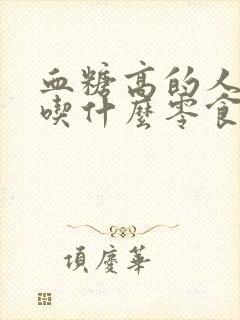 血糖高的人
喫什麼零食
項慶華